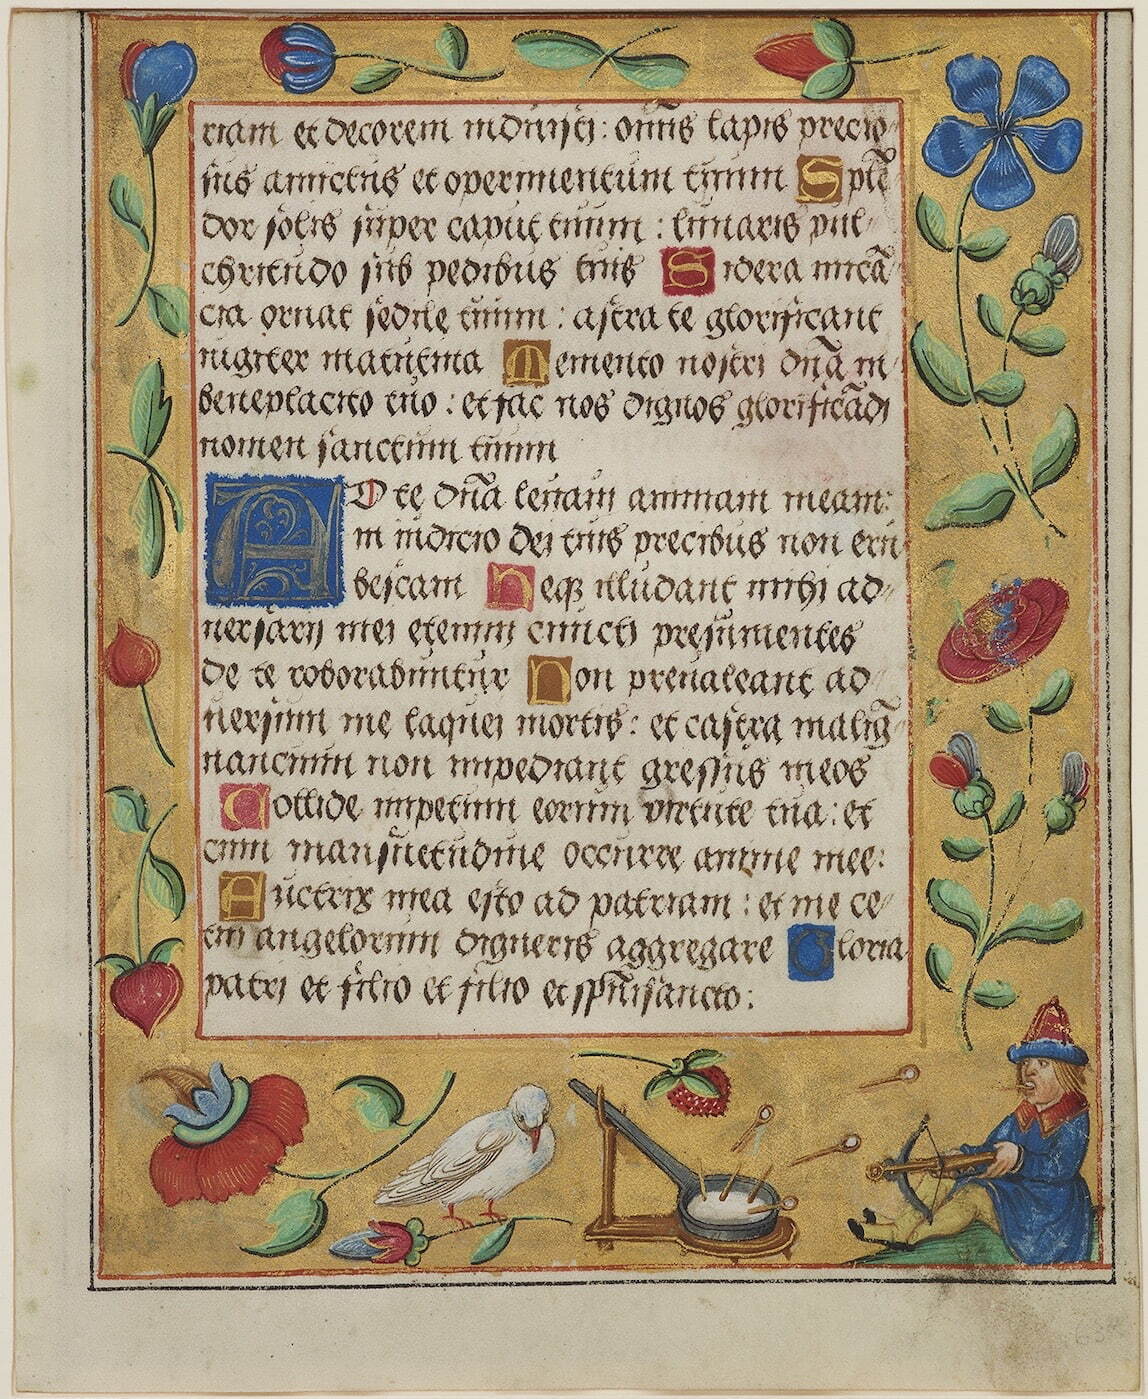 riam et decorem induisti: oms̄ lapis precio
sus amictus et operimentum tuum Splē
dor solis super caput tuum: lunaris pul
chritudo sub pedibus tuis Sidera micā
cia ornat sedile tuum: astra te glorificant
iugiter matutina Memento nostri dn̄a in
beneplacito tuo: et fac nos dignos glorificādi
nomen sanctum tuum
AD te dn̄a leuaui animam meam:
in iudicio dei tuis precibus non eru
bescam Neqꝫ illudant mihi ad
uersarij mei etenim cuncti presumentes
de te roborabuntur Non preualeant ad
uersum me laquei mortis: et castra malig
nancium non impediant gressus meos
Collide impetum eorum virtute tua: et
cum mansuetudine occurre anime mee:
Auctrix mea esto ad patriam: et me ce
tui angelorum digneris aggregare Gloria
patri et filio et filio et spn̄isancto:
63